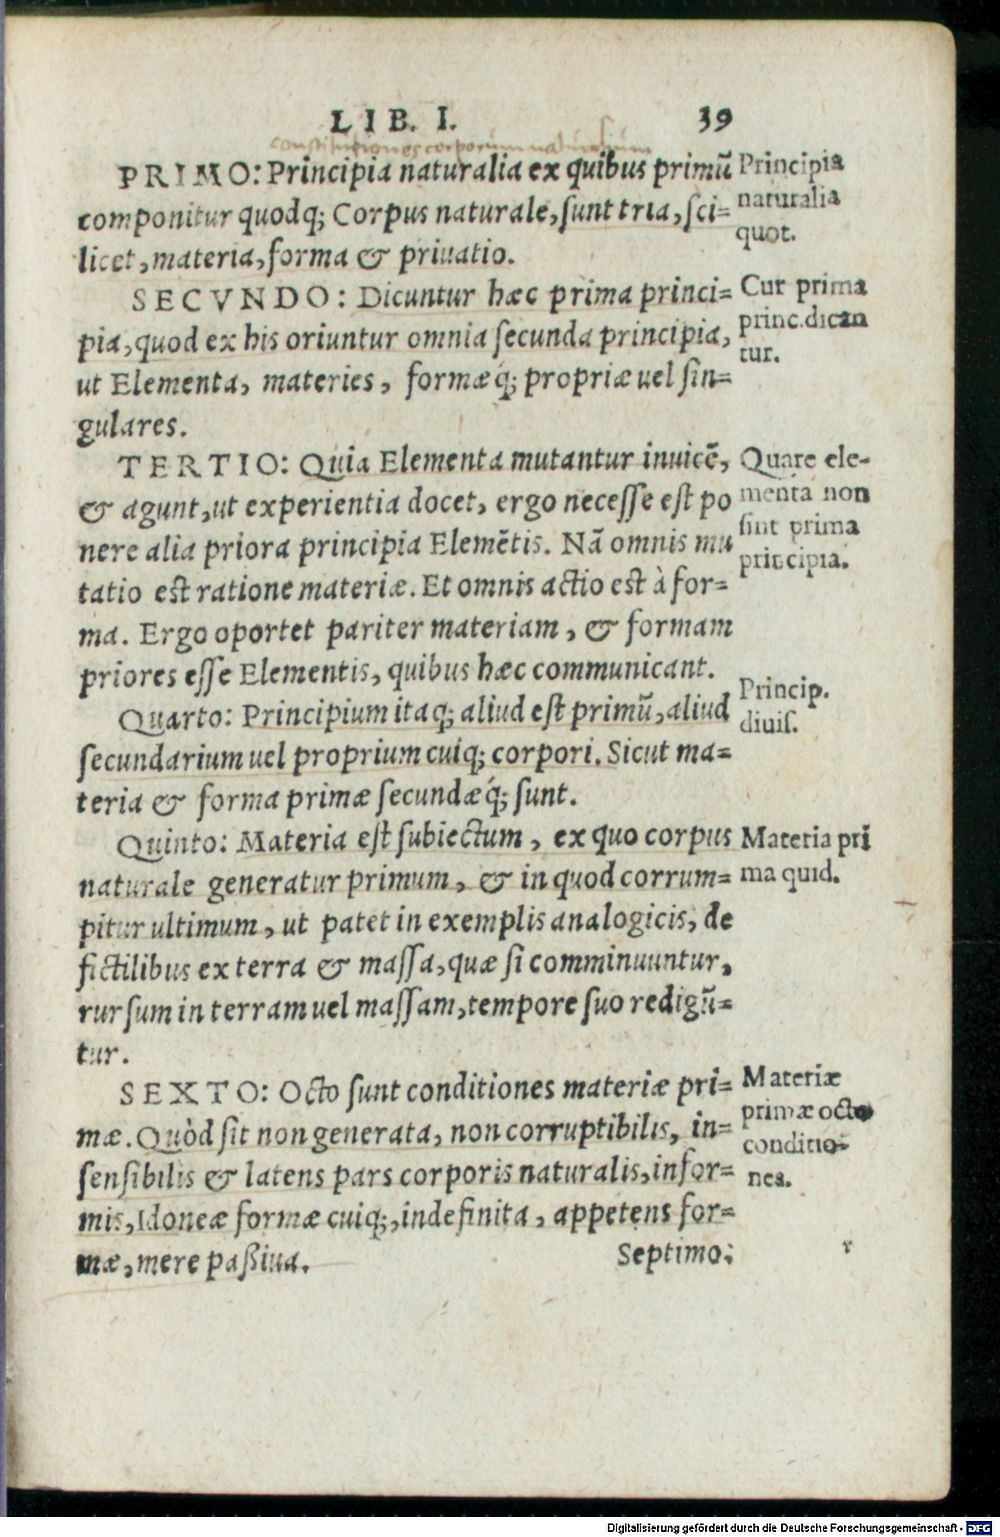 LIB. I. 39
constitutiones corporum naturalium
PRIMO: Principia naturalia ex quibus primũ
componitur quodq; Corpus naturale, ſunt tria, ſci-
licet, materia, forma & priuatio.
Principia
naturalia
quot.
SECVNDO: Dicuntur hæc prima princi-
pia, quod ex his oriuntur omnia ſecunda principia,
ut Elementa, materies, formæq́; propriæ uel ſin-
gulares.
Cur prima
princ. dican
tur.
TERTIO: Quia Elementa mutantur inuicẽ,
& agunt, ut experientia docet, ergo neceſſe eſt po
nere alia priora principia Elemẽtis. Nã omnis mu
tatio eſt ratione materiæ. Et omnis actio eſt à for-
ma. Ergo oportet pariter materiam, & formam
priores eſſe Elementis, quibus hæc communicant.
Quare ele-
menta non
ſint prima
principia.
Quarto: Principium itaq; aliud eſt primũ, aliud
ſecundarium uel proprium cuiq; corpori. Sicut ma-
teria & forma primæ ſecundæq́; ſunt.
Princip.
diuiſ.
Quinto: Materia eſt ſubiectum, ex quo corpus
naturale generatur primum, & in quod corrum-
pitur ultimum, ut patet in exemplis analogicis, de
fictilibus ex terra & maſſa, quæ ſi comminuuntur,
rurſum in terram uel maſſam, tempore ſuo redigũ-
tur.
Materia pri
ma quid.
SEXTO: Octo ſunt conditiones materiæ pri-
mæ. Quòd ſit non generata, non corruptibilis, in-
ſenſibilis & latens pars corporis naturalis, infor-
mis, Idoneæ formæ cuiq;, indefinita, appetens for-
mæ, mere paßiua.
Materiæ
primæ octo
conditio-
nes.
Septimo:
r
Digitalisierung gefördert durch die Deutsche Forschungsgemeinschaft - DFG